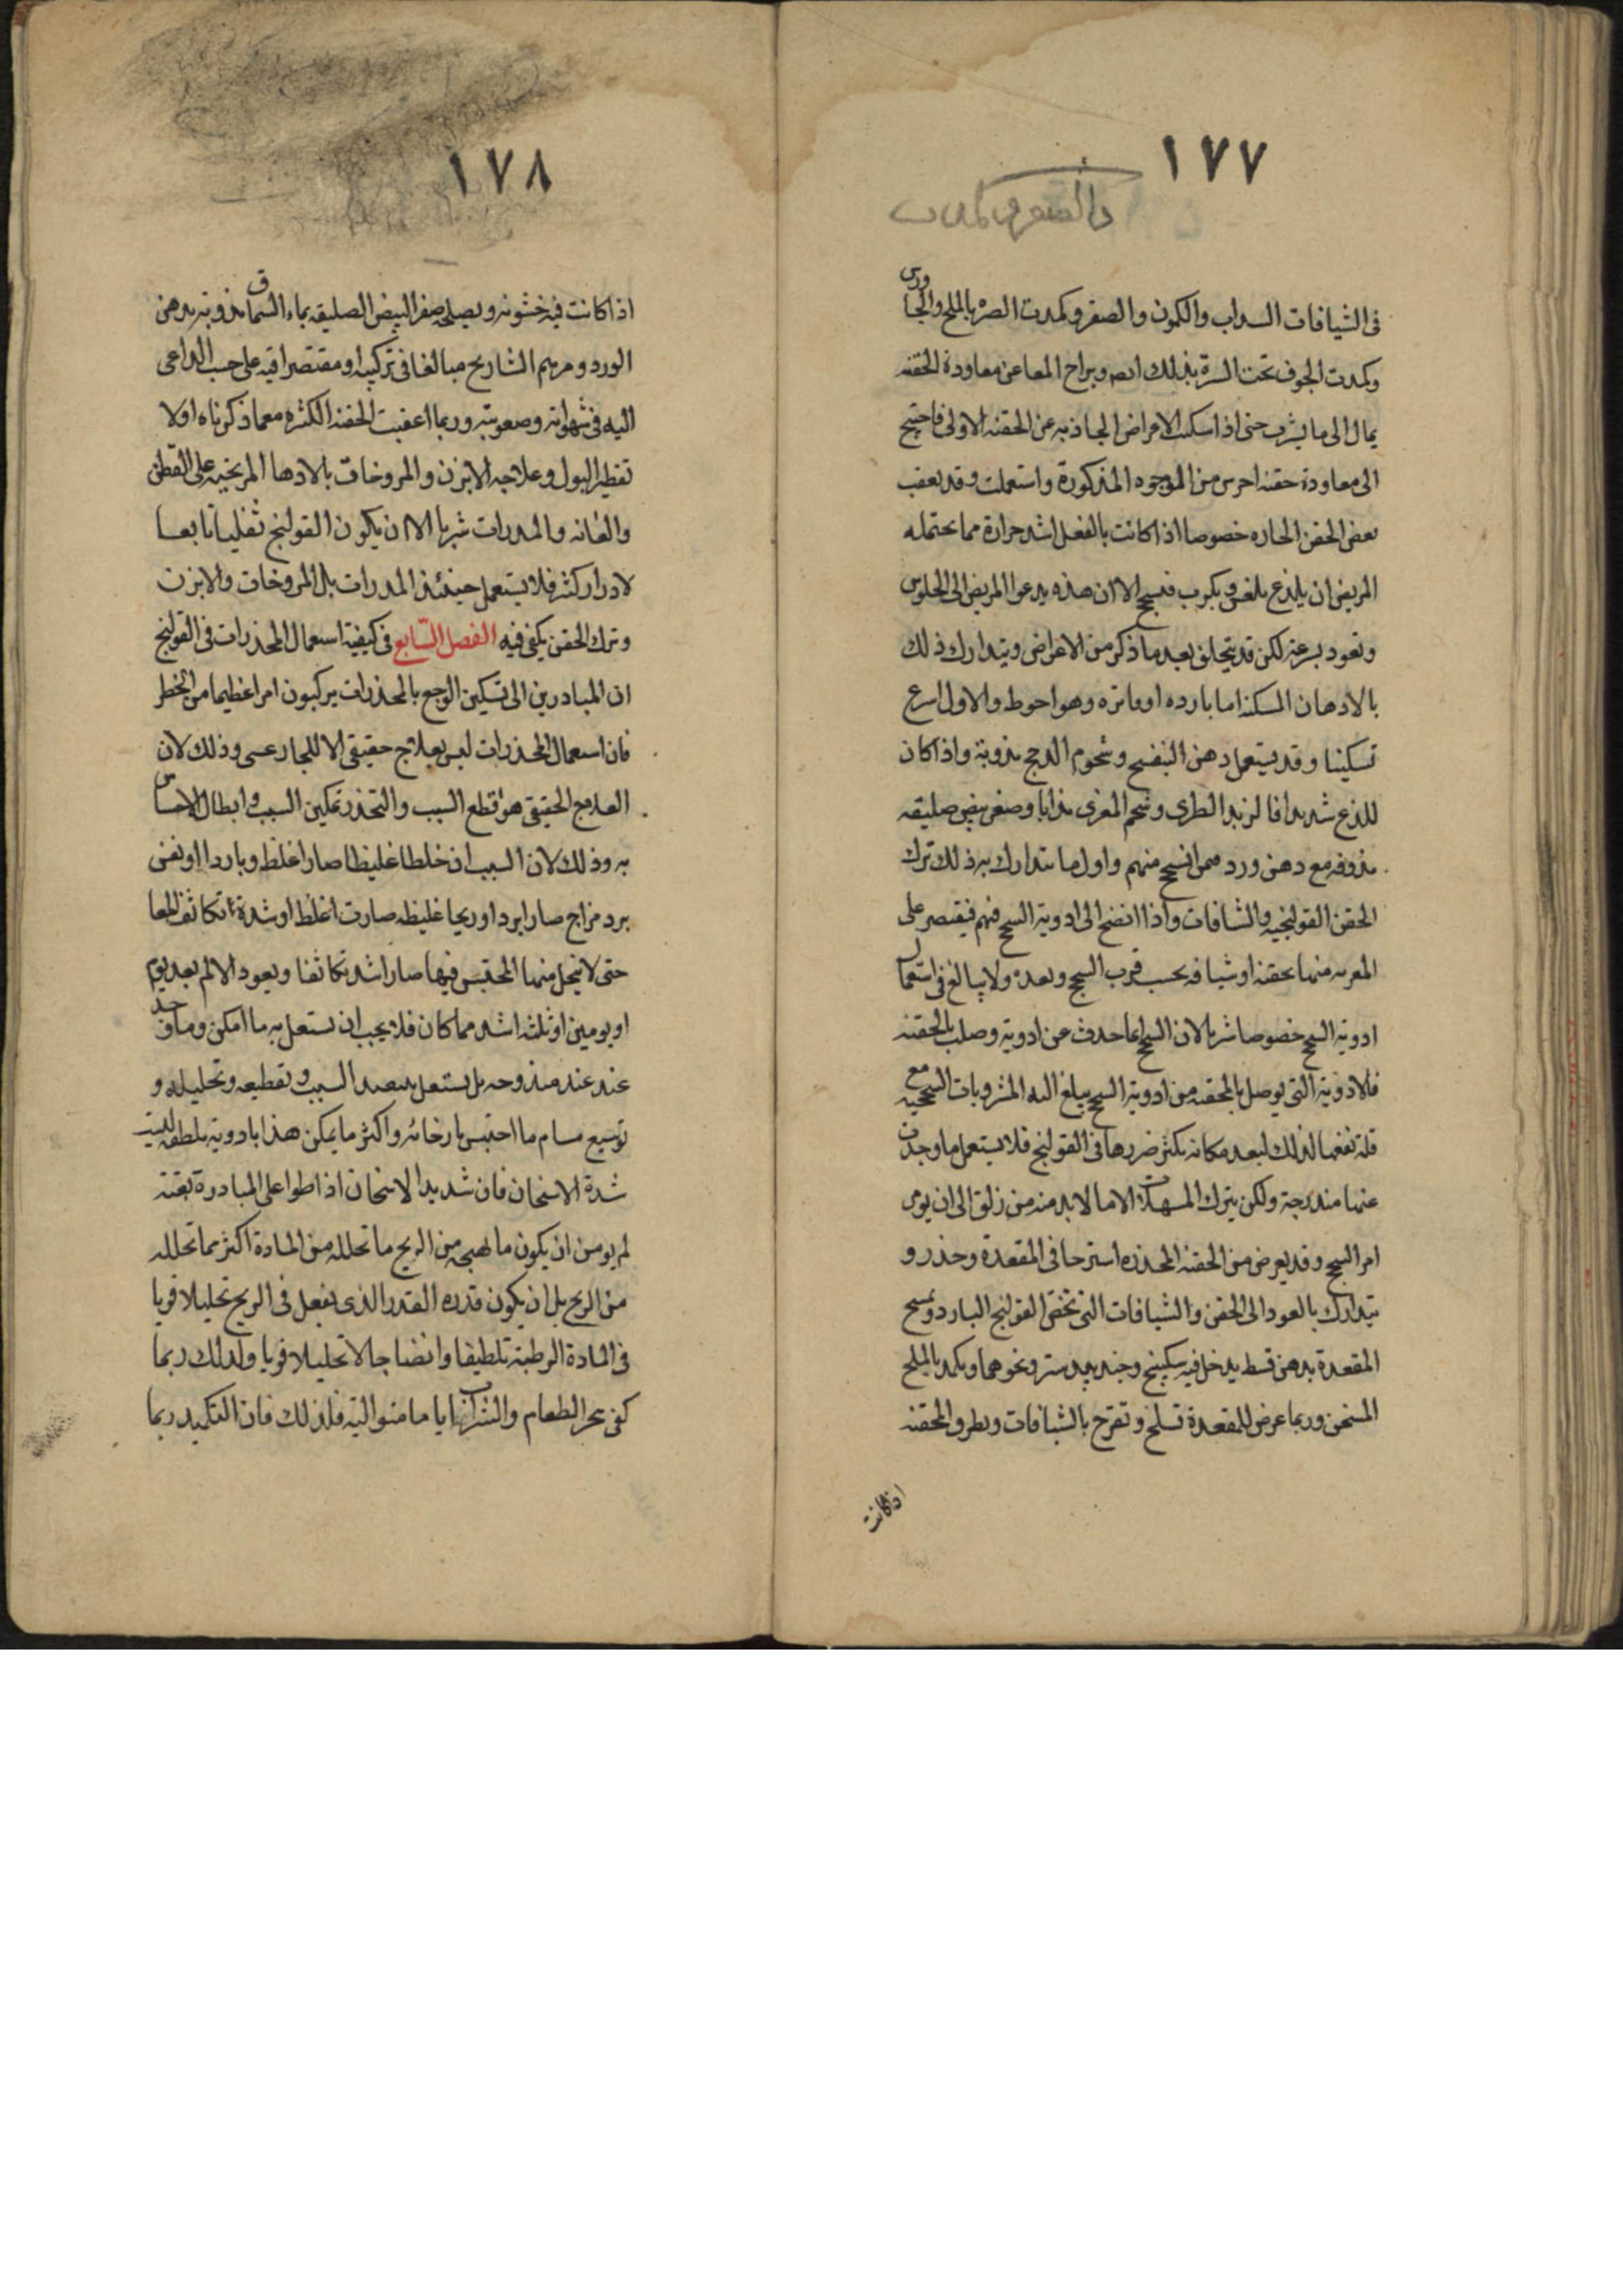 ١٧٧
فى الشيافات السداب والكمون والصعتر وكمدت الصره بالملح والجاورس
وكمدت الجوف تحت السرة بذلك ايضا ويراح المعا عن معاودة الحقنه
يمال الى ما يشرب حتى اذا سكنت الاعراض الجاذبه عن الحقنه الاولى فاحتيج
الى معاودة حقنه اخرى من الوجوه المذكورة واستعملت وقد يعقب
بعض الحقن الحاره خصوصا اذا كانت بالفعل اشد حرارة مما يحتمله
المريض ان يلذع ويكرب فيسحج الا ان هذه يدعوا المريض الى الجلوس
وتعود بسرعة لكن قد يتخلق بعد ما ذكر من الاعراض ويتدارك ذلك
بالادهان المسكنه اما بارده او فاتره وهو احوط والاول اسرع
تسكينا وقد يستعمل دهن البنفسج وشحوم الدجج مذوبة واذا كان
اللذع شديدا فالزبد الطرى وشحم المعزى مذابا وصفر بيض صليقه
مذوفه مع دهن ورد ممن انسحج منهم واول ما يتدارك به ذلك ترك
الحقن القولنجيه والشافات واذا انضح الى ادوية السحج فيهم فيقتصر على
المغريه منها بحقنه او شيافه بحسب قرب السحج وبعده ولا يبالغ فى استعمال
ادوية السحج خصوصا شربا لان السحج انما حدث عن ادوية وصلت بالحقنه
فالادوية التى يوصل بالمحقنه من ادوية السحج يبلغ اليه المشروبات السحجيه مع
قلة نفعها لذلك لبعد مكانه يكثر ضررها فى القولنج فلا يستعمل ما وجدت
عنها مندوحة ولكن يترك المسهلات الا ما لا بد منه من زلق الى ان يومن
امر السحج وقد يعرض من الحقنه المخدره استرخا فى المقعدة وخدر و
يتدارك بالعود الى الحقن والشيافات التى تختص القولنج البارد وتمسح
المقعدة بدهن قسط يدخل فيه سكبينج وجند بيدستر ونحوهما ويكمد بالملح
المسخن وربما عرض للمقعدة تسلخ وتقرح بالشيافات وبطرف المحقنه
اذا كانت
١٧٨
اذا كانت فيه خشونه ويصلحه صفر البيض الصليقه بماء السماق مذوبة بدهن
الورد ومرهم الشاريح مبالغا فى تركيبه او مقتصرا فيه على حسب الداعى
اليه فى سهولته وصعوبته وربما اعقبت الحقنه الكثره مع ما ذكرناه اولا
تقطير البول وعلاجه الابزن والمروخات بالادهان المرخيه على القطن
والعانه والمدرات شربا الا ان يكون القولنج ثفليا تابعا
لادرار كثر فلا يستعمل حينئذ المدرات بل المروخات والابزن
وترك الحقن يكفى فيه الفصل السّابع فى كيفية استعمال المخدرات فى القولنج
ان المبادرين الى تسكين الوجع بالمخدرات يركبون امرا عظيما من الخطر
فان استعمال المخدرات ليس بعلاج حقيقى الا للجار عسى وذلك لان
العلاج الحقيقى هو قطع السبب والتخدر تمكين السبب وابطال الاحساس
به وذلك لان السبب ان خلطا غليظا صار اغلظ وباردا او نفس
برد مزاج صار ابرد او ريحا غليظه صارت اغلظ او شدة تكاثف المعا
حتى لا ينحل منها المحتبس فيها صار اشد تكاثفا ويعود الالم بعد يوم
او يومين او ثلثه اشد مما كان فلا يجب ان تستعمل به ما امكن وما وجد
عنه مندوحه بل يستعمل تبعيد السبب وتقطيعه وتحليله و
توسيع مسام ما احتبس بارخائه واكثر ما يمكن هذا بادوية ملطفه ليست
شدة الاسخان فان شديد الاسخان اذا طرا على المبادرة بغتة
لم يومن ان يكون ما يهيجه من الريح ما تحلله من المادة اكثر مما تحلله
من الريح بل ان يكون قدره القدر الذى يفعل فى الريح تحليلا قويا
فى المادة الرطبة تلطيفا وانضاجا لا تحليلا قويا ولذلك ربما
كفى هجر الطعام والشراب اياما متوالية فلذلك فان التكميد ربما